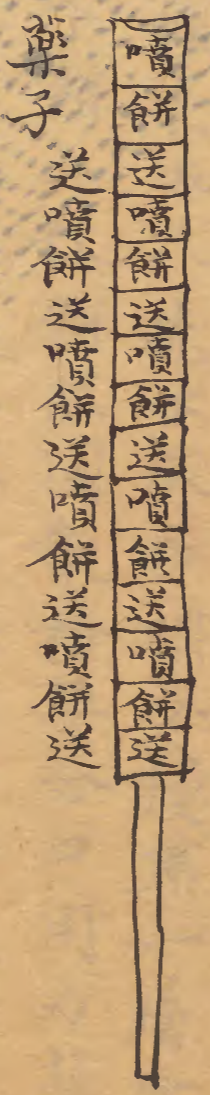 噴餅送噴餅送噴餅送噴餅送噴餅送
藥子
送噴餅送噴餅送噴餅送噴餅送